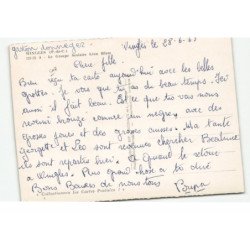 Wingles le 28-6-67
WINGLES (P.-de-C.)
Le Groupe Scolaire Léon Blum
Chère fille.
Bien reçu ta carte aujourd'hui avec les belles
grottes. Je vois que tu as du beau temps. Ici
aussi il fait beau. Est ce que tu vas nous
revenir bronzé comme un nègre, avec des
grosses joues et des grosses cuisses. Ma tante
Georgette et Léo sont venus chercher Béatrice
ils sont repartis hier. A quand le retour
à Wingles. Plus grand chose à te dire
Bons Baisers de nous tous